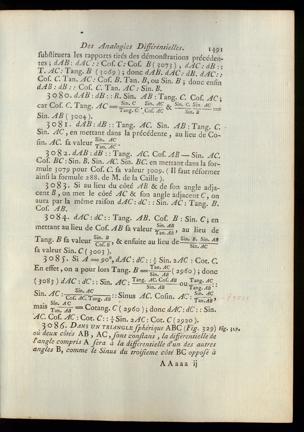 Des Analogies Différentielles. 1491
substituera les rapports tirés des démonstrations précéden-
tes; dAB: dAC :: Cos. C: Cos. B (3073), dAC: dB ::
T. AC: Tang. B (3069); donc dAB. dAC: dB. dAC ::
Cos. C. Tan. AC: Cos. B. Tan. B, ou Sin. B; donc enfin
dAB: dB :: Cos. C. Tan. AC: Sin. B.
3080. dAB: dB :: R. Sin. AB: Tang. C. Cos. AC;
car Cos. C. Tang. AC = Sin. C / Tang. C · Sin. AC / Cos. AC & Sin. C. Sin. AC / Sin. B =
Sin. AB (3004).
3081. dAB: dB :: Tang. AC. Sin. AB: Tang. C.
Sin. AC, en mettant dans la précédente, au lieu de Co-
sin. AC. sa valeur Sin. AC / Tan. AC.
3082. dAB: dB :: Tang. AC. Cos. AB — Sin. AC.
Cos. BC: Sin. B. Sin. AC. Sin. BC. en mettant dans la for-
mule 3079 pour Cos. C. sa valeur 3009. (Il faut réformer
ainsi la formule 288. de M. de la Caille).
3083. Si au lieu du côté AB & de son angle adja-
cent B, on met le côté AC & son angle adjacent C, on
aura par la même raison dAC: dC :: Sin. AC: Tang. B.
Cos. AB.
3084. dAC: dC :: Tang. AB. Cos. B: Sin. C; en
mettant au lieu de Cos. AB sa valeur Sin. AB / Tan. AB, au lieu de
Tang. B sa valeur Sin. B / Cos. B, & ensuite au lieu de Sin. B. Sin. AB / Sin. AC
sa valeur Sin. C (3003).
3085. Si A = 90°, dAC: dC :: ½ Sin. 2AC: Cot. C.
En effet, on a pour lors Tang. B = Tan. AC / Sin. AB (2960); donc
(3083) dAC: dC :: Sin. AC: Tang. AC. Cos. AB / Sin. AB ou Tang. AC / Tang. AB ::
Sin. AC: Sin. AC / Cos. AC. Tang. AB :: Sinus AC. Cosin. AC: Sin. AC / Tan. AB,
mais Sin. AC / Tan. AB = Cotang. C (2960); donc dAC: dC :: Sin.
AC. Cos. AC: Cot. C :: ½ Sin. 2AC: Cot. C (2920).
3086. DANS UN TRIANGLE sphérique ABC (Fig. 329) Fig. 329.
où deux côtés AB, AC, sont constans, la différentielle de
l'angle compris A sera à la différentielle d'un des autres
angles B, comme le Sinus du troisieme côté BC opposé à
AAaaa ij